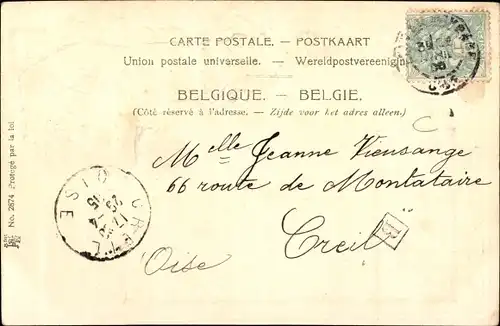 CARTE POSTALE. — POSTKAART
Union postale universelle. — Wereldpostvereeniging
BELGIQUE. — BELGIE.
(Côté réservé à l'adresse. — Zijde voor het adres alleen.)
Melle Jeanne Vieusange
66 route de Montataire
Creil
Oise
CREIL
OISE
No. 2874 Protégé par la loi